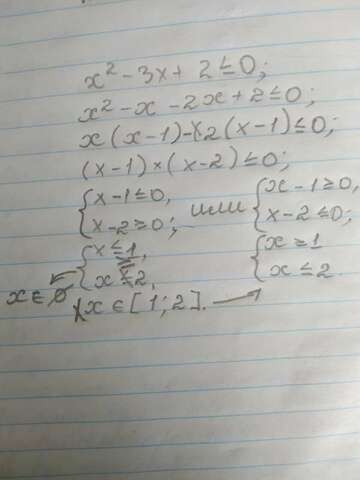 x² - 3x + 2 ≤ 0;
x² - x - 2x + 2 ≤ 0;
x(x-1) - 2(x-1) ≤ 0;
(x-1) × (x-2) ≤ 0;
{ x-1 ≤ 0, или { x-1 ≥ 0,
x-2 ≥ 0; x-2 ≤ 0;
{ x ≤ 1, { x ≥ 1
x ≤ 2, x ≤ 2.
x ∈ ∅ x ∈ [1; 2].